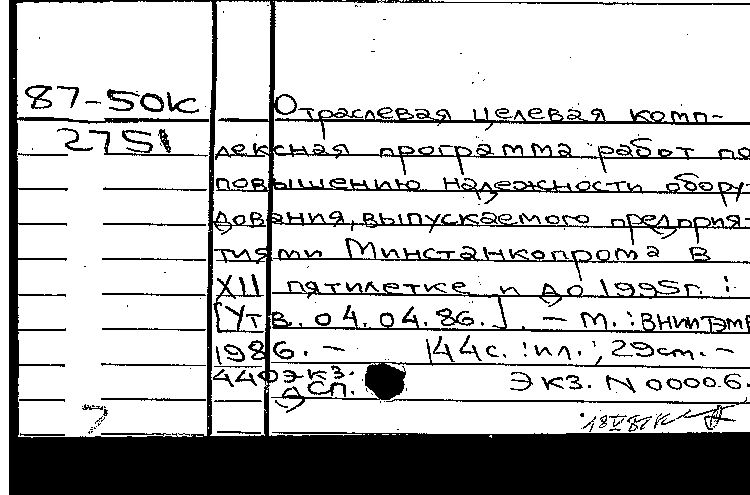 87-50К
2751
Отраслевая целевая комп-
лексная программа работ по
повышению надежности обору-
дования, выпускаемого предприя-
тиями Минстанкопрома в
XII пятилетке и до 1995г. :
[Утв. 04.04.86.]. - М. : ВНИИТЭМР
1986. - 144с. : ил. ; 29см. -
440экз. Экз. N 00006.
ДСП.